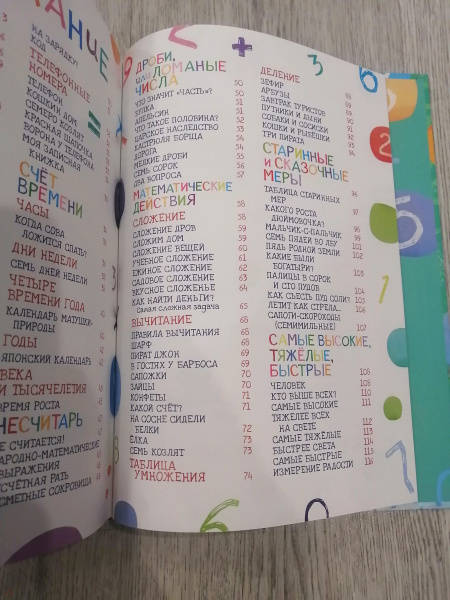 НА ЗАРЯДКУ!
КОД
ТЕЛЕФОННЫЕ
НОМЕРА
ТЕЛЕФОН
КОШКИН ДОМ
СЕМЕРО КОЗЛЯТ
КРАСНАЯ ШАПОЧКА
ВОРОНА У ТЕЛЕФОНА
МОЯ ЗАПИСНАЯ
КНИЖКА
СЧЁТ
ВРЕМЕНИ
ЧАСЫ
КОГДА СОВА
ЛОЖИТСЯ СПАТЬ?
ДНИ НЕДЕЛИ
СЕМЬ ДНЕЙ НЕДЕЛИ
ЧЕТЫРЕ
ВРЕМЕНИ ГОДА
КАЛЕНДАРЬ МАТУШКИ-
ПРИРОДЫ
ГОДЫ
ЯПОНСКИЙ КАЛЕНДАРЬ
ВЕКА
И ТЫСЯЧЕЛЕТИЯ
ВРЕМЯ РОСТА
НЕСЧИТАРЬ
НЕ СЧИТАЕТСЯ!
НАРОДНО-МАТЕМАТИЧЕСКИЕ
ВЫРАЖЕНИЯ
НЕСЧЁТНАЯ РАТЬ
НЕСМЕТНЫЕ СОКРОВИЩА
ДРОБИ,
ИЛИ ЛОМАНЫЕ
ЧИСЛА 50
ЧТО ЗНАЧИТ «ЧАСТЬ»? 50
БУЛКА 51
АПЕЛЬСИН 51
ЧТО ТАКОЕ ПОЛОВИНА?
МАЙСКОЕ НАСЛЕДСТВО
КАСТРЮЛЯ БОРЩА
ДОРОГА
МЕЛКИЕ ДРОБИ
СЕМЬ СОРОК 56
ДВА ВОПРОСА 57
МАТЕМАТИЧЕСКИЕ
ДЕЙСТВИЯ 58
СЛОЖЕНИЕ 58
СЛОЖЕНИЕ ДРОВ 59
СЛОЖИМ ДОМ 60
СЛОЖЕНИЕ ВЕЩЕЙ 60
УЧЁНОЕ СЛОЖЕНИЕ 61
ЕЖИНОЕ СЛОЖЕНИЕ 62
САДОВОЕ СЛОЖЕНИЕ 63
ВКУСНОЕ СЛОЖЕНЬЕ 64
КАК НАЙТИ ДЕНЬГИ?
Самая сложная задача 65
ВЫЧИТАНИЕ 65
ПРАВИЛА ВЫЧИТАНИЯ 68
ШАРФ 68
ПИРАТ ДЖОН 69
В ГОСТЯХ У БАРБОСА 69
САПОЖКИ 70
ЗАЙЦЫ 70
КОНФЕТЫ 71
КАКОЙ СЧЁТ? 71
НА СОСНЕ СИДЕЛИ
БЕЛКИ 72
ЁЛКА 73
СЕМЬ КОЗЛЯТ 73
ТАБЛИЦА
УМНОЖЕНИЯ 74
ДЕЛЕНИЕ
ЗЕФИР
АРБУЗЫ
ЗАВТРАК ТУРИСТОВ
ПУТНИКИ И ДЫНИ
СОБАКИ И СОСИСКИ
КОШКИ И РЫБЁШКИ
ТРИ ПИРАТА 94
СТАРИННЫЕ
И СКАЗОЧНЫЕ
МЕРЫ 96
ТАБЛИЦА СТАРИННЫХ
МЕР
КАКОГО РОСТА
ДЮЙМОВОЧКА?
МАЛЬЧИК-С-ПАЛЬЧИК
СЕМЬ ПЯДЕЙ ВО ЛБУ
ПЯДЬ РОДНОЙ ЗЕМЛИ
КАКИЕ БЫЛИ
БОГАТЫРИ?
ПАЛИЦЫ В СОРОК
И СТО ПУДОВ
КАК СЪЕСТЬ ПУД СОЛИ?
ЛЕТИТ КАК СТРЕЛА...
САПОГИ-СКОРОХОДЫ
(СЕМИМИЛЬНЫЕ) 107
САМЫЕ ВЫСОКИЕ,
ТЯЖЁЛЫЕ,
БЫСТРЫЕ 108
ЧЕЛОВЕК 108
КТО ВЫШЕ ВСЕХ? 110
САМЫЕ ВЫСОКИЕ
ТЯЖЕЛЕЕ ВСЕХ
НА СВЕТЕ 112
САМЫЕ ТЯЖЁЛЫЕ 113
БЫСТРЕЕ СВЕТА 114
САМЫЕ БЫСТРЫЕ 115
ИЗМЕРЕНИЕ РАДОСТИ 116